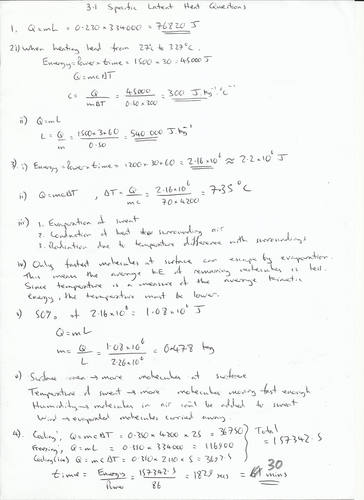 3.1 Specific Latent Heat Questions
1. Q=mL = 0.230 × 334000 = 76820 J
2 i) When heating lead from 27°C to 327°C.
Energy = Power × time = 1500 × 30 = 45000 J
Q = mcΔT
c = Q / mΔT = 45000 / 0.50×300 = 300 J.kg⁻¹.°C⁻¹
ii) Q = mL
L = Q / m = 1500×3×60 / 0.50 = 540 000 J.kg⁻¹
3) i) Energy = Power × time = 1200×30×60 = 2.16×10⁶ ≈ 2.2×10⁶ J
ii) Q = mcΔT, ΔT = Q / mc = 2.16×10⁶ / 70×4200 = 7.35°C
iii) 1. Evaporation of sweat
2. Conduction of heat to surrounding air
3. Radiation due to temperature difference with surroundings
iv) Only fastest molecules at surface can escape by evaporation.
This means the average KE of remaining molecules is less.
Since temperature is a measure of the average kinetic
energy, the temperature must be lower.
v) 50% of 2.16×10⁶ = 1.08×10⁶ J
Q = mL
m = Q / L = 1.08×10⁶ / 2.26×10⁶ = 0.478 kg
v) Surface area → more molecules at surface
Temperature of sweat → more molecules moving fast enough
Humidity → molecules in air will be added to sweat
Wind → evaporated molecules carried away
4). Cooling, Q = mcΔT = 0.350 × 4200 × 25 = 36750
Freezing, Q = mL = 0.350 × 334000 = 116900
Cooling (ice) Q = mcΔT = 0.350×2110×5 = 3692.5
Total = 157342.5
time = Energy / Power = 157342.5 / 86 = 1829 secs = 30 mins